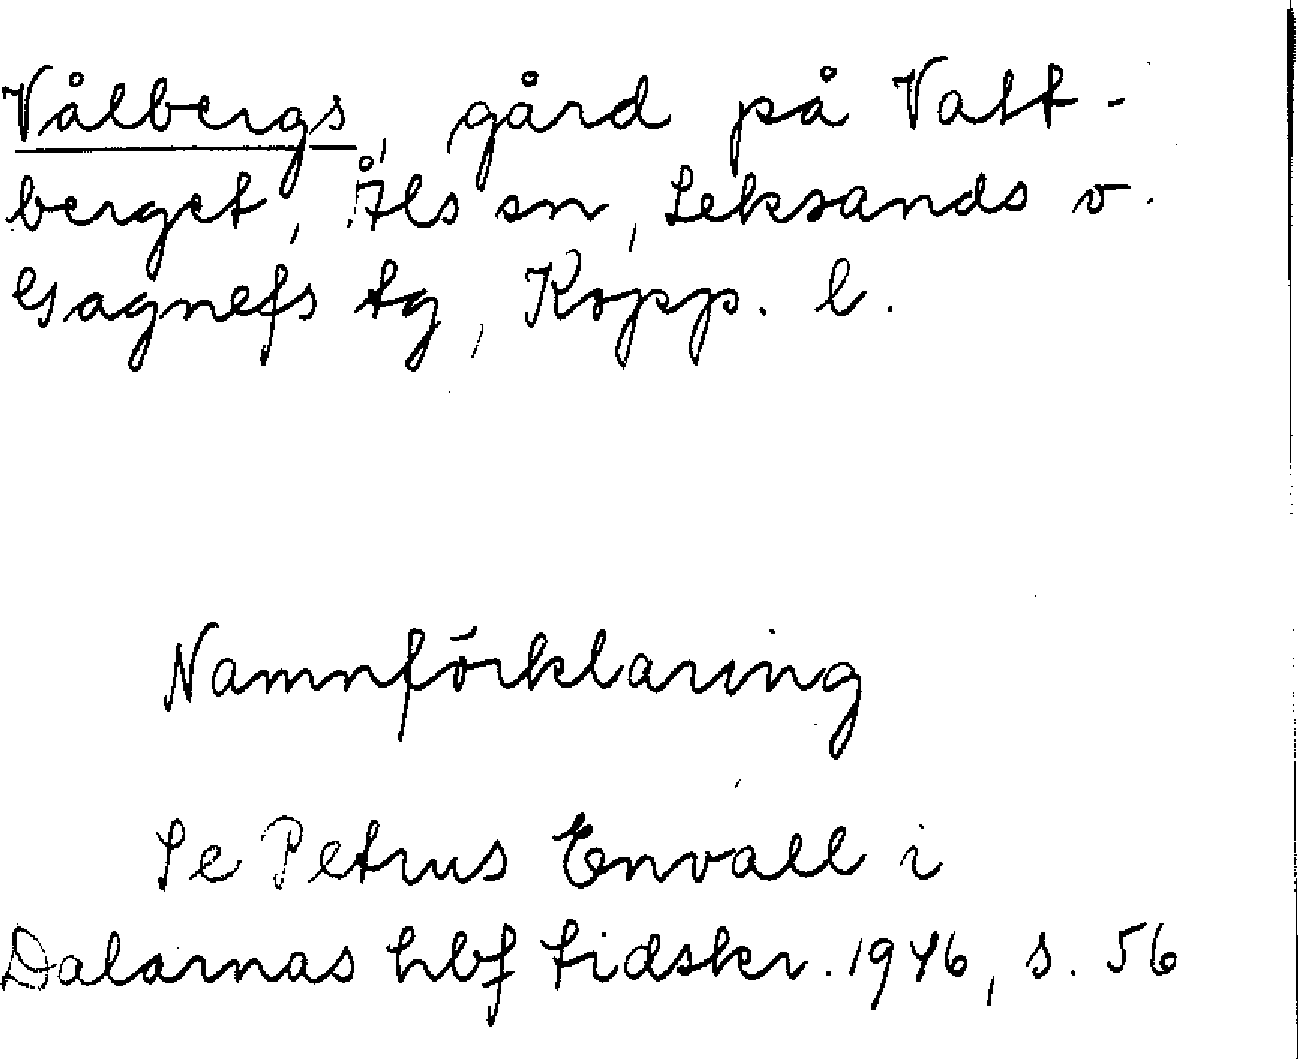 Vålbergs, gård på Valt-
berget, Åls sn, Leksands o.
Gagnefs tg, Kopp. l.
Namnförklaring
Se Petrus Envall i
Dalarnas hbf tidskr. 1946, s. 56